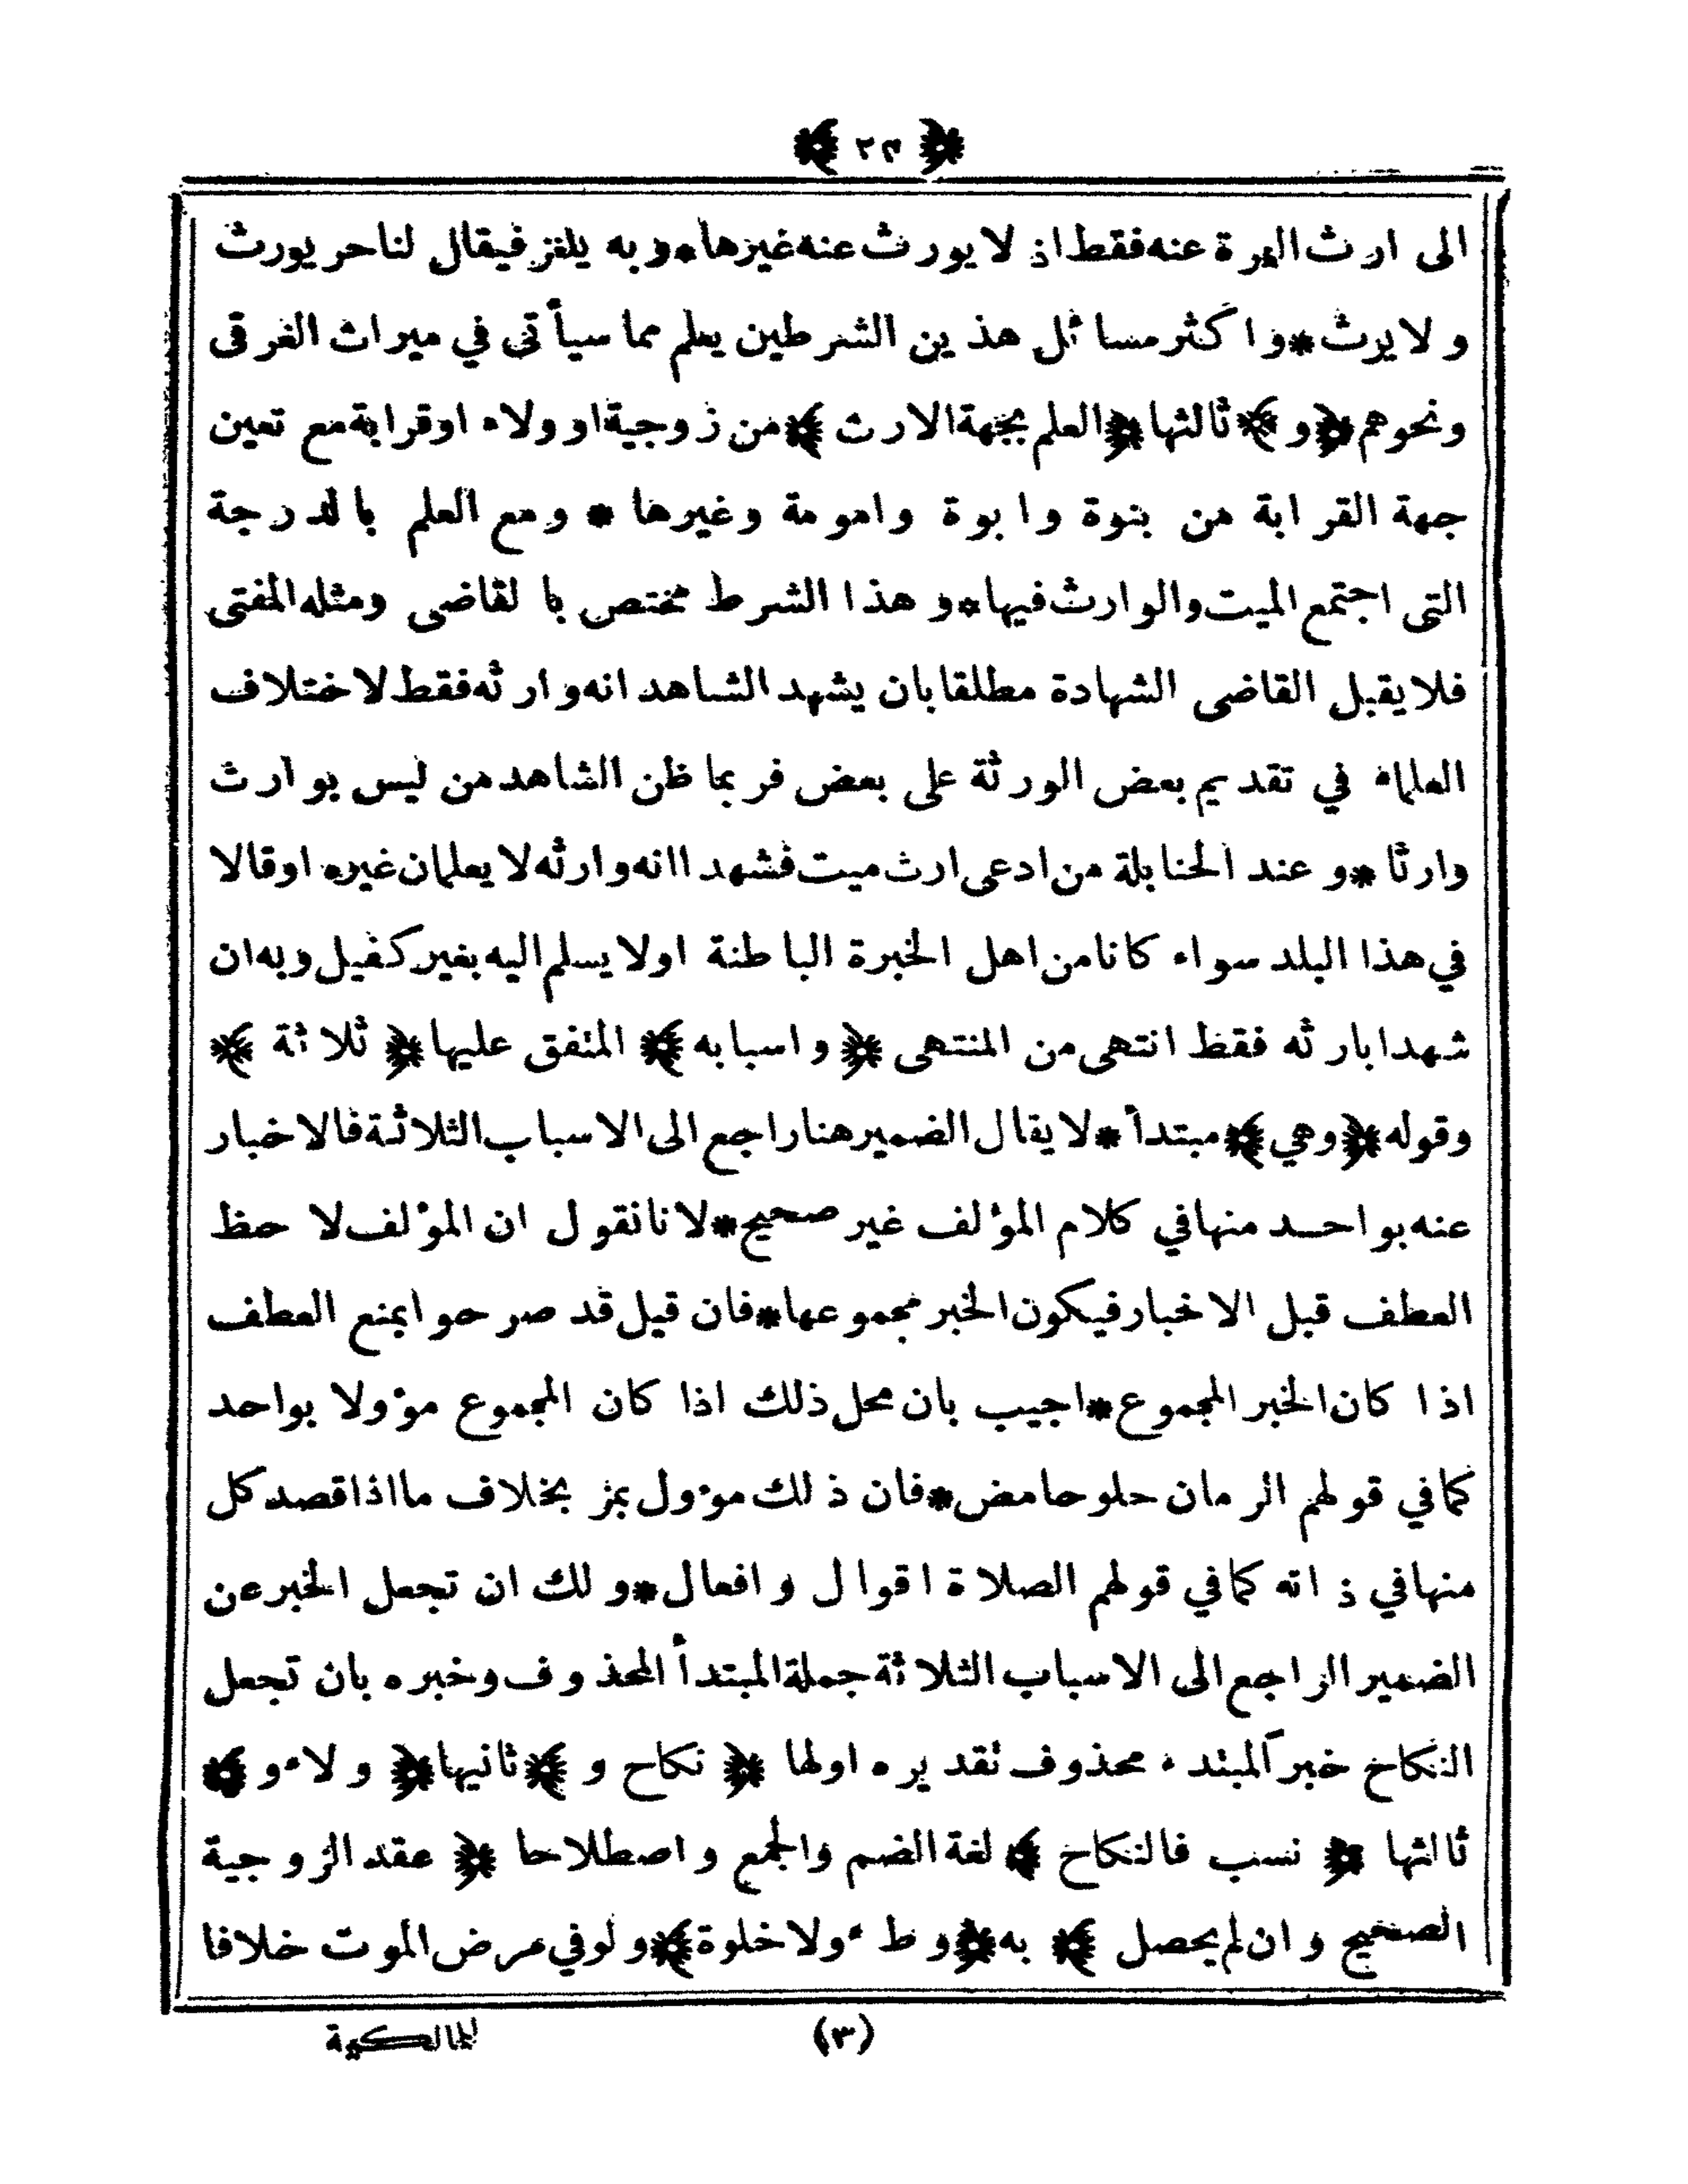 ﴿ ٢٣ ﴾
الى ارث الغرة عنه فقط اذ لا يورث عنه غيرها * وبه يلغز فيقال لنا حر يورث
ولا يرث * واكثر مسائل هذين الشرطين يعلم مما سيأتى في ميراث الغرقى
ونحوهم ﴿ و ﴾ ثالثها ﴿ العلم بجهة الارث ﴾ من زوجية او ولاء او قرابة مع تعين
جهة القرابة من بنوة وابوة وامومة وغيرها * ومع العلم بالدرجة
التى اجتمع الميت والوارث فيها * وهذا الشرط مختص بالقاضى ومثله المفتى
فلا يقبل القاضى الشهادة مطلقا بان يشهد الشاهد انه وارثه فقط لاختلاف
العلماء في تقديم بعض الورثة على بعض فربما ظن الشاهد من ليس بوارث
وارثا * وعند الحنابلة من ادعى ارث ميت فشهدا انه وارثه لا يعلمان غيره او قالا
في هذا البلد سواء كانا من اهل الخبرة الباطنة اولا يسلم اليه بغير كفيل وبه ان
شهدا بارثه فقط انتهى من المنتهى ﴿ واسبابه ﴾ المتفق عليها ﴿ ثلاثة ﴾
وقوله ﴿ وهي ﴾ مبتدأ * لا يقال الضمير هنا راجع الى الاسباب الثلاثة فالاخبار
عنه بواحد منها في كلام المؤلف غير صحيح * لانا نقول ان المؤلف لاحظ
العطف قبل الاخبار فيكون الخبر مجموعها * فان قيل قد صرحوا بمنع العطف
اذا كان الخبر المجموع * اجيب بان محل ذلك اذا كان المجموع مؤولا بواحد
كما في قولهم الرمان حلو حامض * فان ذلك مؤول بمز بخلاف ما اذا قصد كل
منها في ذاته كما في قولهم الصلاة اقوال وافعال * ولك ان تجعل الخبر عن
الضمير الراجع الى الاسباب الثلاثة جملة المبتدأ المحذوف وخبره بان تجعل
النكاح خبر المبتدء محذوف تقديره اولها ﴿ نكاح و ﴾ ثانيها ﴿ ولاء و ﴾
ثالثها ﴿ نسب فالنكاح ﴾ لغة الضم والجمع واصطلاحا ﴿ عقد الزوجية
الصحيح وان لم يحصل ﴾ به ﴿ وطء ولا خلوة ﴾ ولو في مرض الموت خلافا
(٣)
للمالكية